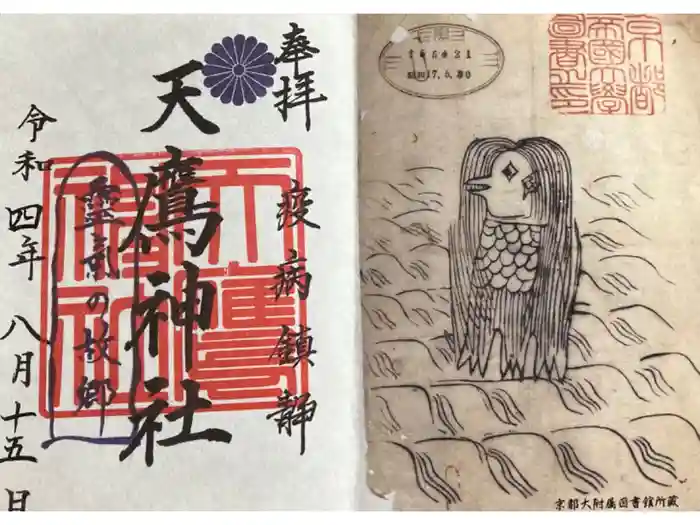 奉拝
疫病鎮静
天鷹神社
天鷹神社
靈氣の故郷
令和四年八月十五日
京都帝國大學圖書之印
京都大附属図書館所蔵